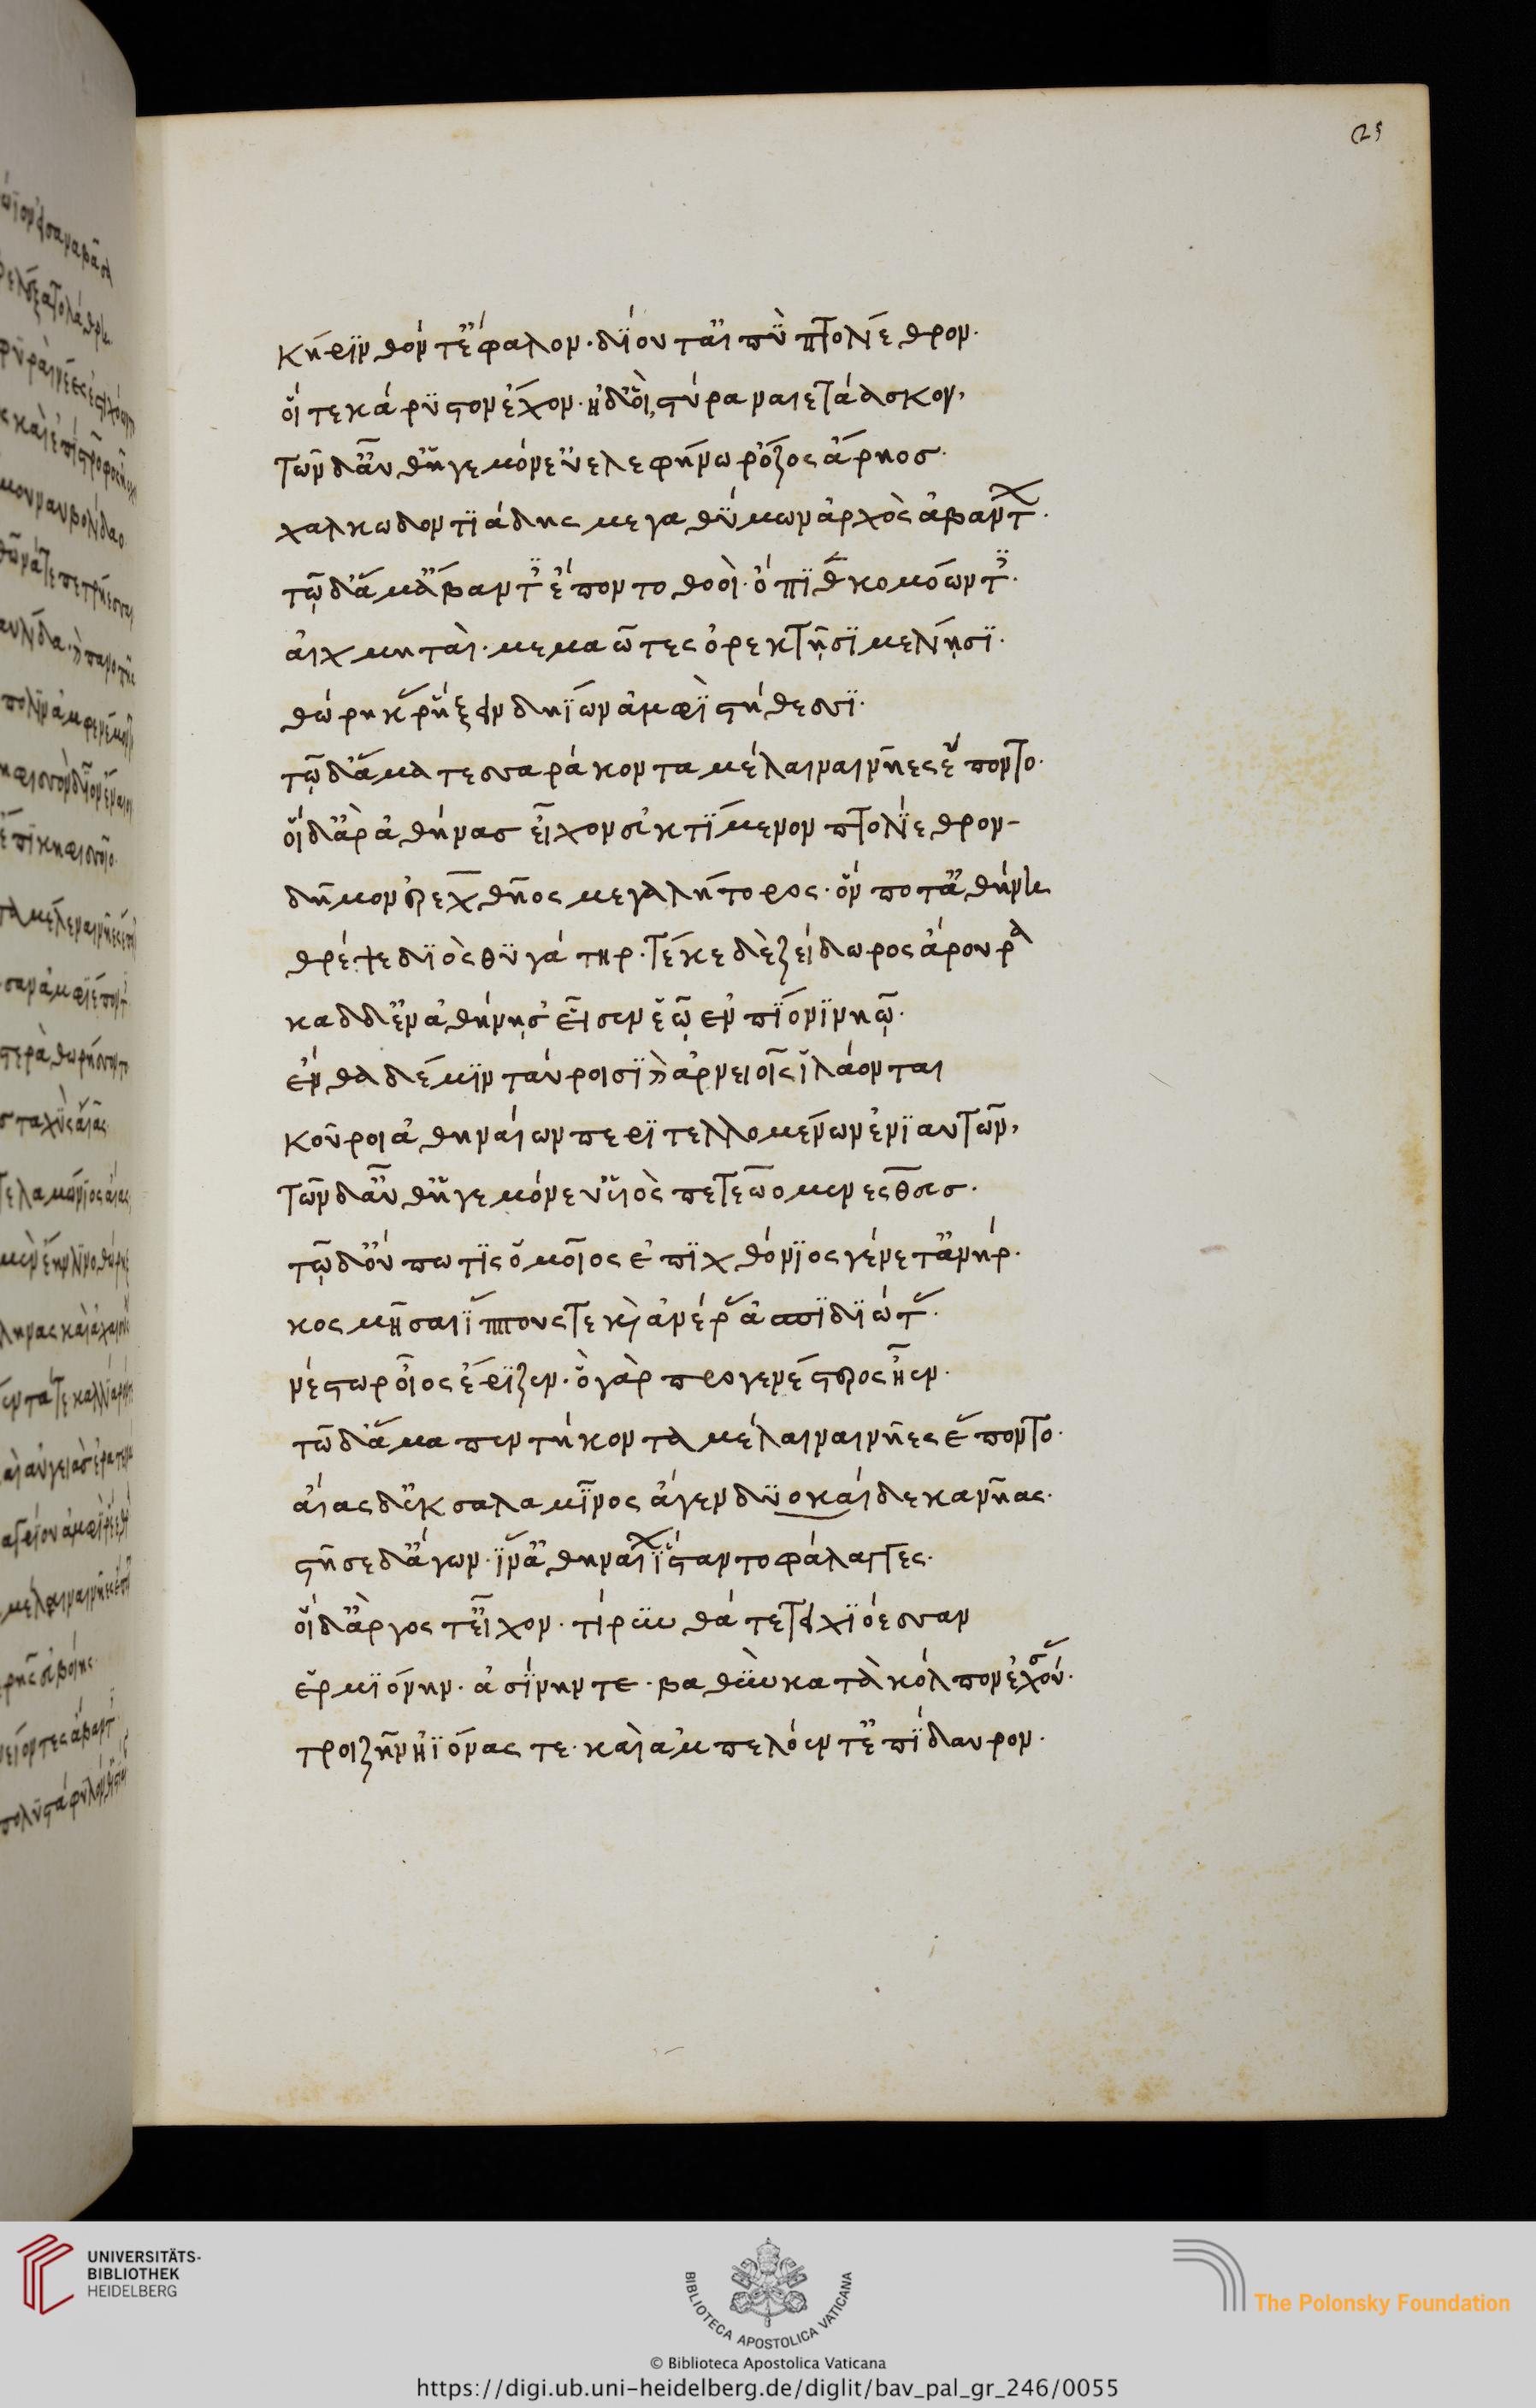 25
κήρινθόν τ' ἔφαλον· δίου τ' αἰπὺ πτολίεθρον·
οἵ τε κάρυστον ἔχον· ἠδ' οἳ στύρα ναιετάασκον,
τῶν δ' αὖθ' ἡγεμόνευ' ἐλεφήνωρ ὄζος ἄρηος·
χαλκωδοντιάδης μεγαθύμων ἀρχὸς ἀβάντων·
τῷ δ' ἅμ' ἄβαντες ἕποντο θοοὶ· ὄπιθεν κομόωντες·
αἰχμηταὶ· μεμαῶτες ὀρεκτῇσι μελίῃσι·
θώρηκας ῥήξειν δηΐων ἀμφὶ στήθεσσι·
τῷ δ' ἅμα τεσσαράκοντα μέλαιναι νῆες ἕποντο·
οἳ δ' ἄρ' ἀθήνας εἶχον ἐϋκτίμενον πτολίεθρον-
δῆμον ἐρεχθῆος μεγαλήτορος· ὅν ποτ' ἀθήνη
θρέψε διὸς θυγάτηρ· τέκε δὲ ζείδωρος ἄρουρα
καδδ' ἐν ἀθήνῃσ' εἷσεν ἑῷ ἐν πίονι νηῷ·
ἔνθα δέ μιν ταύροισι καὶ ἀρνειοῖς ἱλάονται
κοῦροι ἀθηναίων περιτελλομένων ἐνιαυτῶν,
τῶν δ' αὖθ' ἡγεμόνευ' υἱὸς πετεῶο μενεσθεύς·
τῷ δ' οὔπω τις ὁμοῖος ἐπιχθόνιος γένετ' ἀνήρ·
κοσμῆσαι ἵππους τε καὶ ἀνέρας ἀσπιδιώτας·
νέστωρ οἶος ἔριζεν· ὁ γὰρ προγενέστερος ἦεν·
τῷ δ' ἅμα πεντήκοντα μέλαιναι νῆες ἕποντο·
αἴας δ' ἐκ σαλαμῖνος ἄγεν δυοκαίδεκα νῆας·
στῆσε δ' ἄγων· ἵν' ἀθηναίων ἵσταντο φάλαγγες·
οἳ δ' ἄργος τ' εἶχον· τίρυνθά τε τειχιόεσσαν
ἑρμιόνην· ἀσίνην τε· βαθὺν κατὰ κόλπον ἐχούσας·
τροιζῆν' ἠϊόνας τε· καὶ ἀμπελόεντ' ἐπίδαυρον·
UNIVERSITÄTS-
BIBLIOTHEK
HEIDELBERG
BIBLIOTECA APOSTOLICA VATICANA
The Polonsky Foundation
© Biblioteca Apostolica Vaticana
https://digi.ub.uni-heidelberg.de/diglit/bav_pal_gr_246/0055